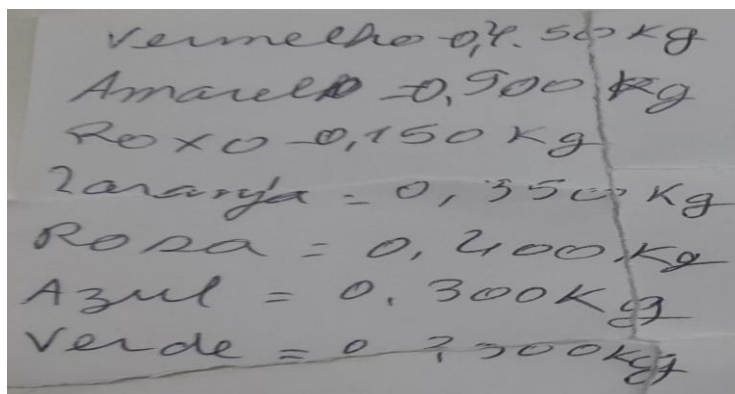 Vermelho - 0,450 kg
Amarelo - 0,500 kg
Roxo - 0,150 Kg
Laranja = 0,350 Kg
Rosa = 0,400 Kg
Azul = 0,300 Kg
Verde = Kg